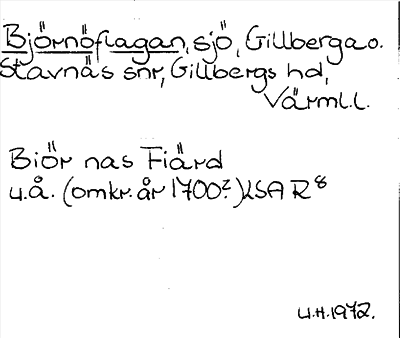 Björnöflagan, sjö, Gillberga o.
Stavnäs snr, Gillbergs hd,
Värml.l.
Biör nas Fiärd
u.å. (omkr. år 1700?) LSA R8
U.H. 1972.